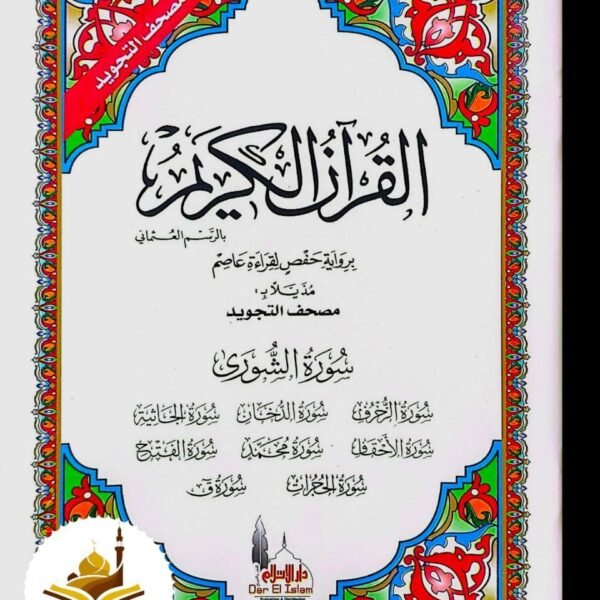 مصحف التجويد
القُرآنُ الكَرِيمُ
بالرسم العثماني
برِوَايَةِ حَفْصٍ لِقِرَاءَةِ عَاصِم
مُذَيَّلاً بـ:
مصحف التجويد
سُورَةُ الشُّورَى
سُورَةُ الزُّخْرُف سُورَةُ الدُّخَان سُورَةُ الجَاثِيَة
سُورَةُ الأَحْقَاف سُورَةُ مُحَمَّد سُورَةُ الفَتْح
سُورَةُ الحُجُرَات سُورَةُ ق
دار الإسلام
Dar El Islam